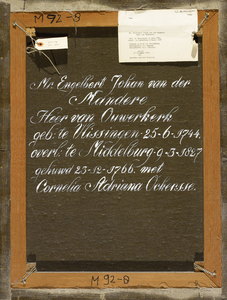 M92-8
Mr. Engelbert Johan van der
Mandere
Heer van Ouwerkerk
geb: te Vlissingen-25-6-1744.
overl: te Middelburg-9-3-1827
gehuwd 23-12-1766. met
Cornelia Adriana Ockersse.
M92-8